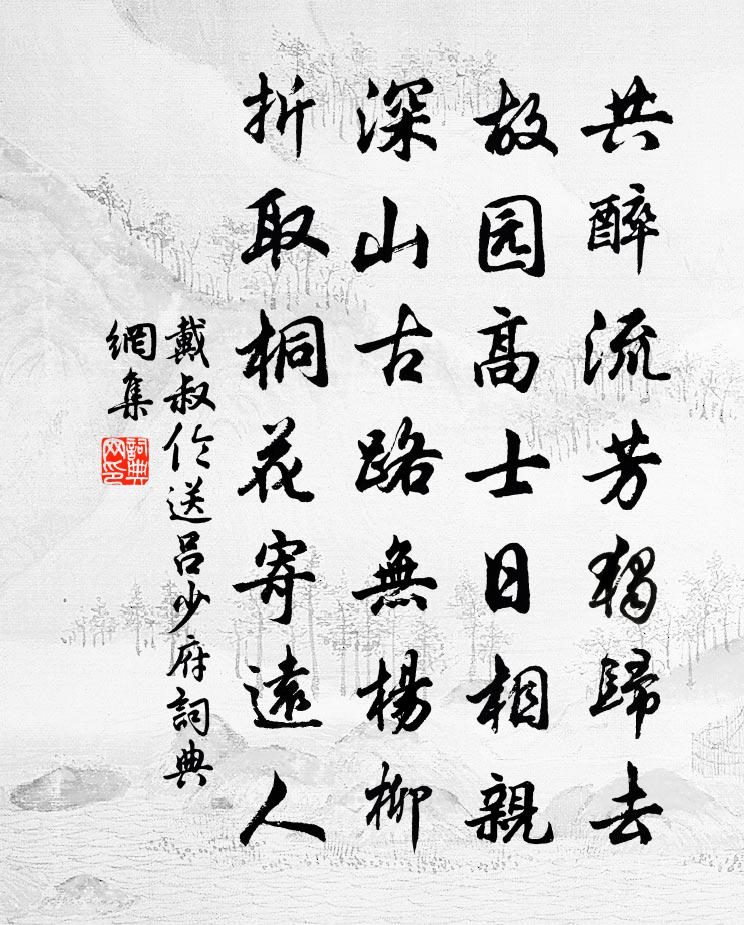 共醉流芳獨歸去
故园高士日相親
深山古路無楊柳
折取桐花寄遠人
戴叔伦送吕少府詞典
網集
詞典
网印